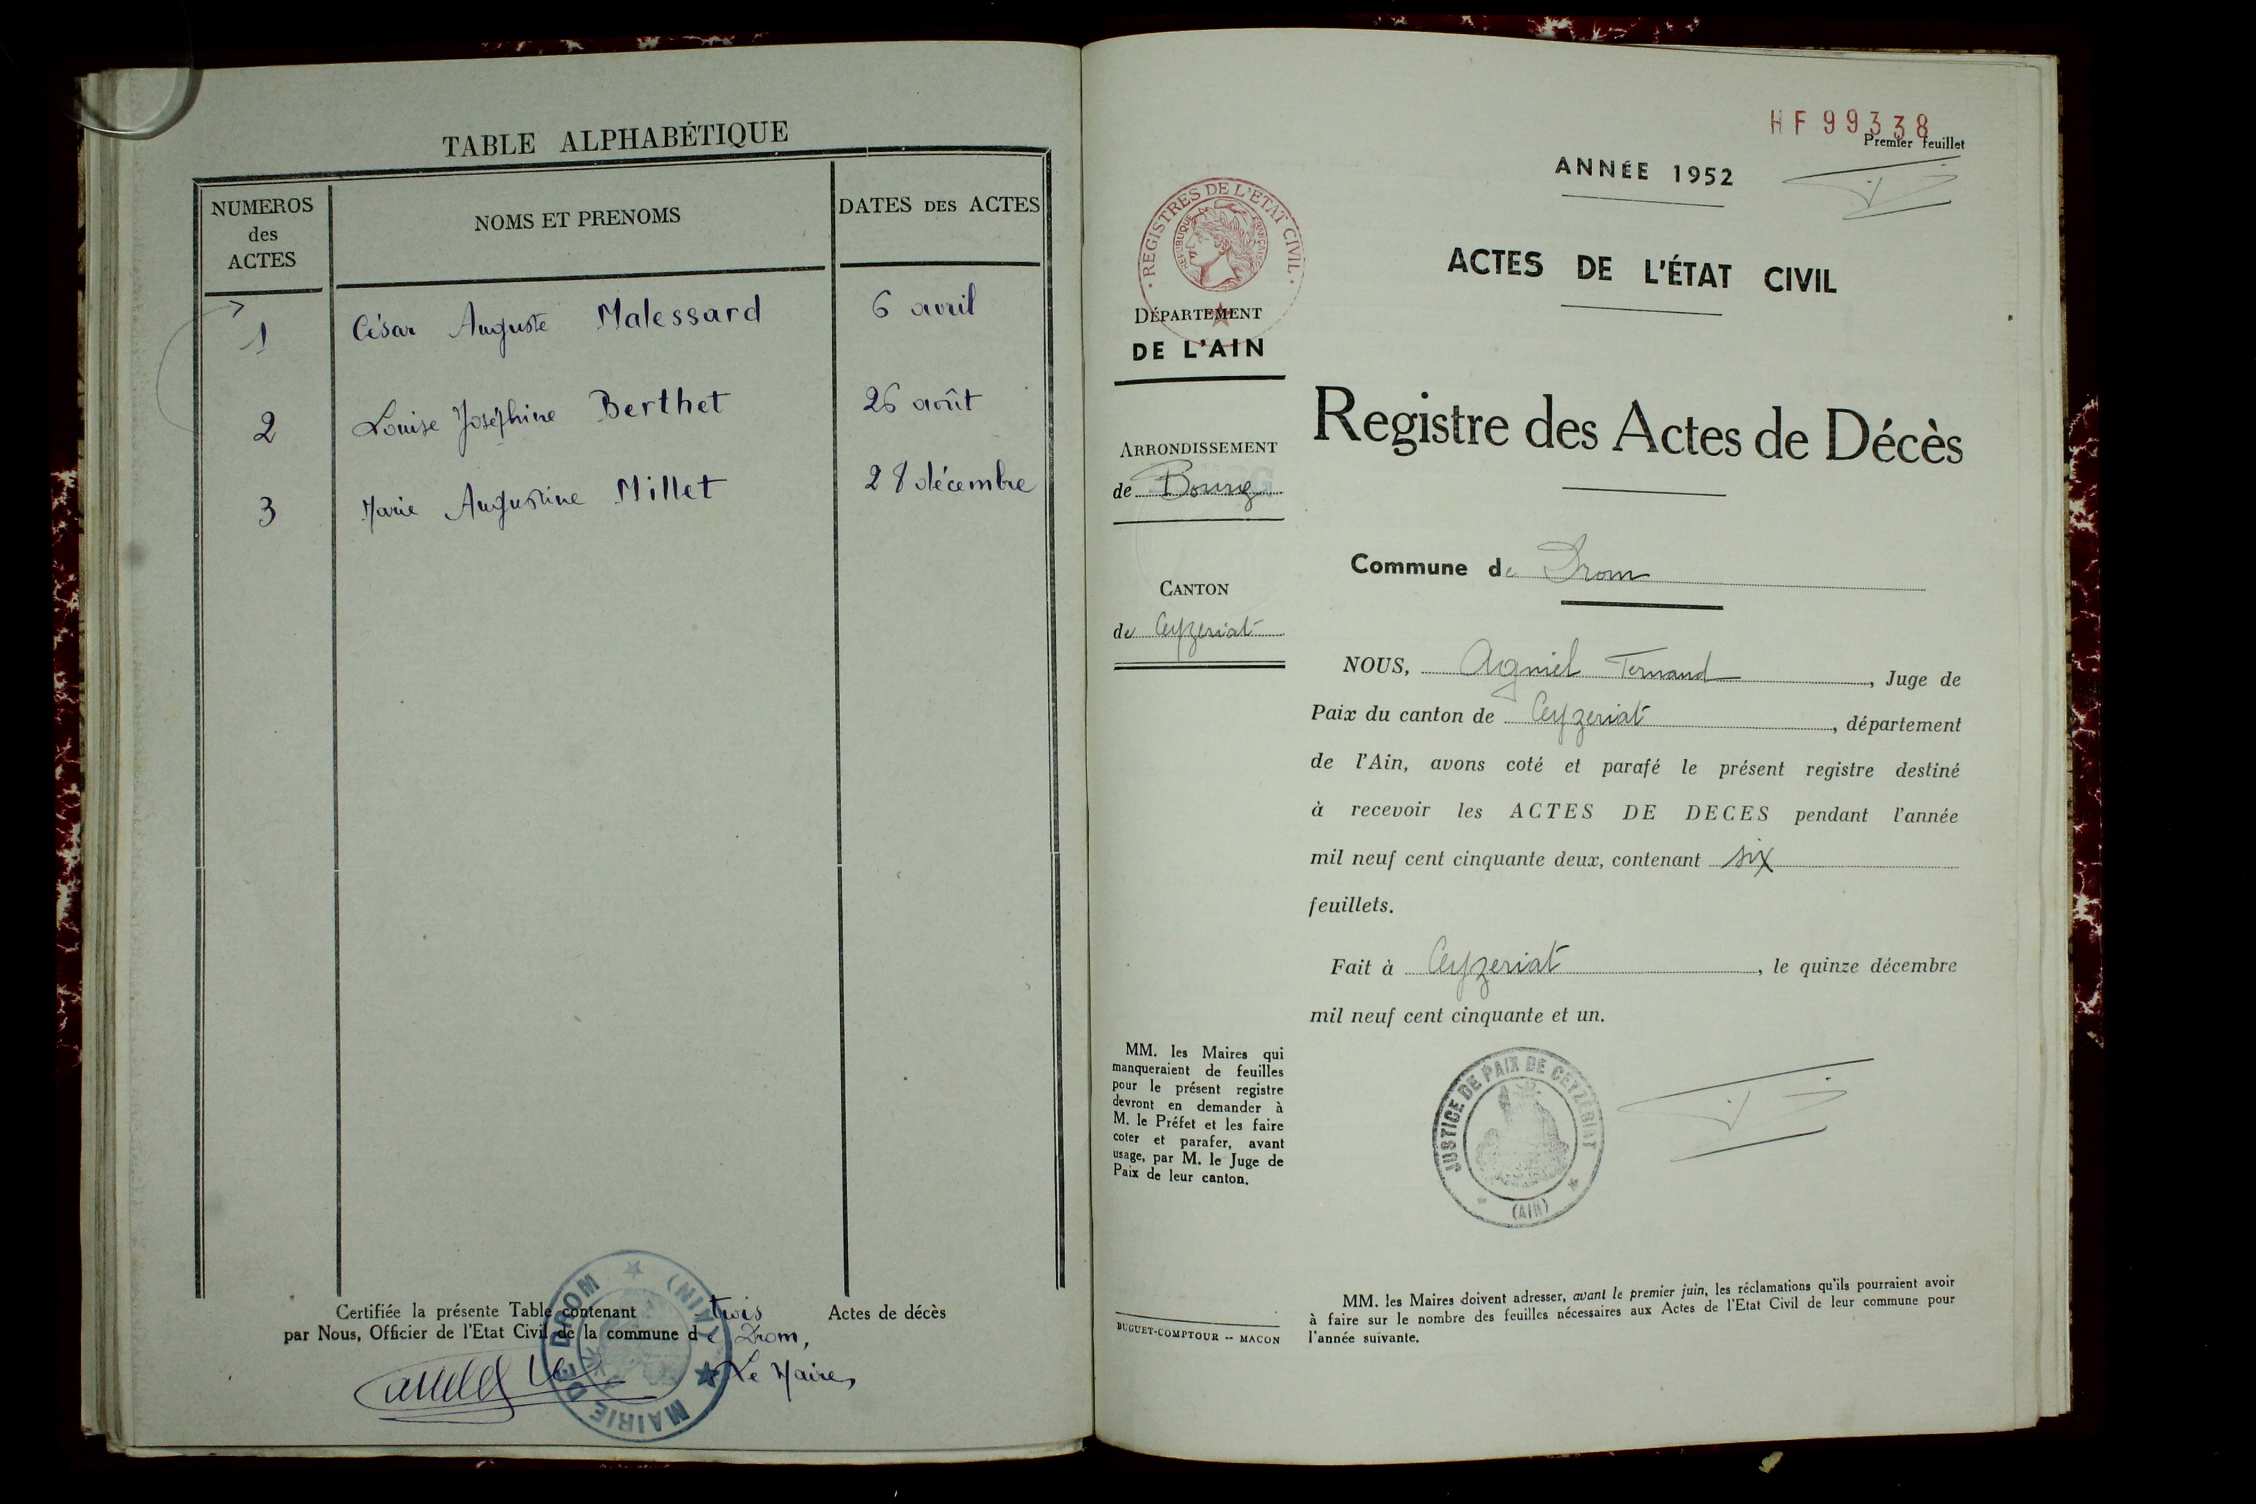 TABLE ALPHABÉTIQUE
NUMEROS
des
ACTES
NOMS ET PRENOMS
DATES DES ACTES
1 César Auguste Malessard 6 avril
2 Louise Joséphine Berthet 26 août
3 Marie Augustine Millet 28 décembre
Certifiée la présente Table contenant trois Actes de décès
par Nous, Officier de l'Etat Civil de la commune de Drom,
Le Maire,
MAIRIE DE DROM
(AIN)
HF 99338
Premier feuillet
ANNÉE 1952
REGISTRES DE L'ETAT CIVIL
REPUBLIQUE FRANÇAISE
ACTES DE L'ÉTAT CIVIL
DÉPARTEMENT
DE L'AIN
Registre des Actes de Décès
ARRONDISSEMENT
de Bourg
Commune de Drom
CANTON
de Ceyzeriat
NOUS, Agniel Fernand, Juge de
Paix du canton de Ceyzeriat, département
de l'Ain, avons coté et parafé le présent registre destiné
à recevoir les ACTES DE DECES pendant l'année
mil neuf cent cinquante deux, contenant six
feuillets.
Fait à Ceyzeriat, le quinze décembre
mil neuf cent cinquante et un.
MM. les Maires qui
manqueraient de feuilles
pour le présent registre
devront en demander à
M. le Préfet et les faire
coter et parafer, avant
usage, par M. le Juge de
Paix de leur canton.
JUSTICE DE PAIX DE CEYZÉRIAT
(AIN)
MM. les Maires doivent adresser, avant le premier juin, les réclamations qu'ils pourraient avoir
à faire sur le nombre des feuilles nécessaires aux Actes de l'Etat Civil de leur commune pour
l'année suivante.
BUGUET-COMPTOUR -- MACON